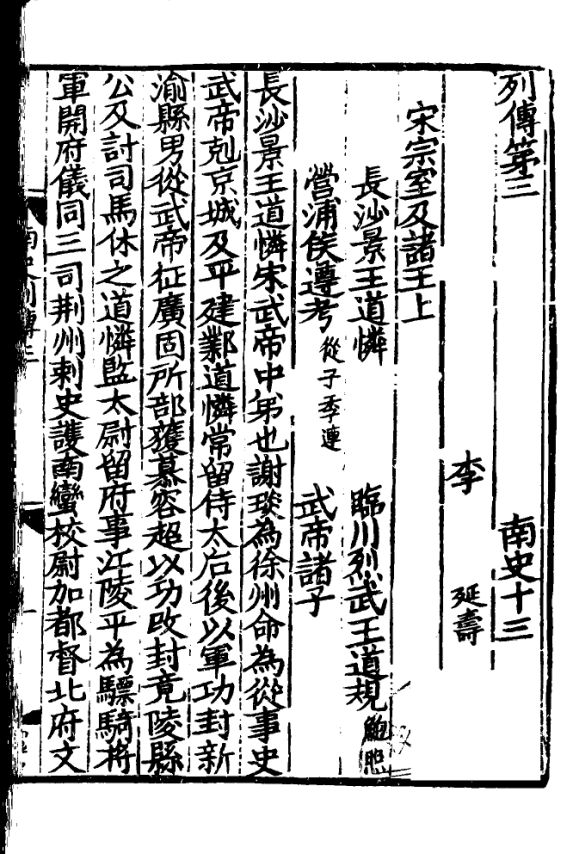 列傳第三　南史十三
李　延壽
宋宗室及諸王上
長沙景王道憐　臨川烈武王道規 鮑照
營浦侯遵考 從子季連　武帝諸子
長沙景王道憐宋武帝中弟也謝琰為徐州命為從事史
武帝剋京城及平建鄴道憐常留侍太后後以軍功封新
渝縣男從武帝征廣固所部獲慕容超以功改封竟陵縣
公及討司馬休之道憐監太尉留府事江陵平為驃騎將
軍開府儀同三司荆州刺史護南蠻校尉加都督北府文
南史列傳三